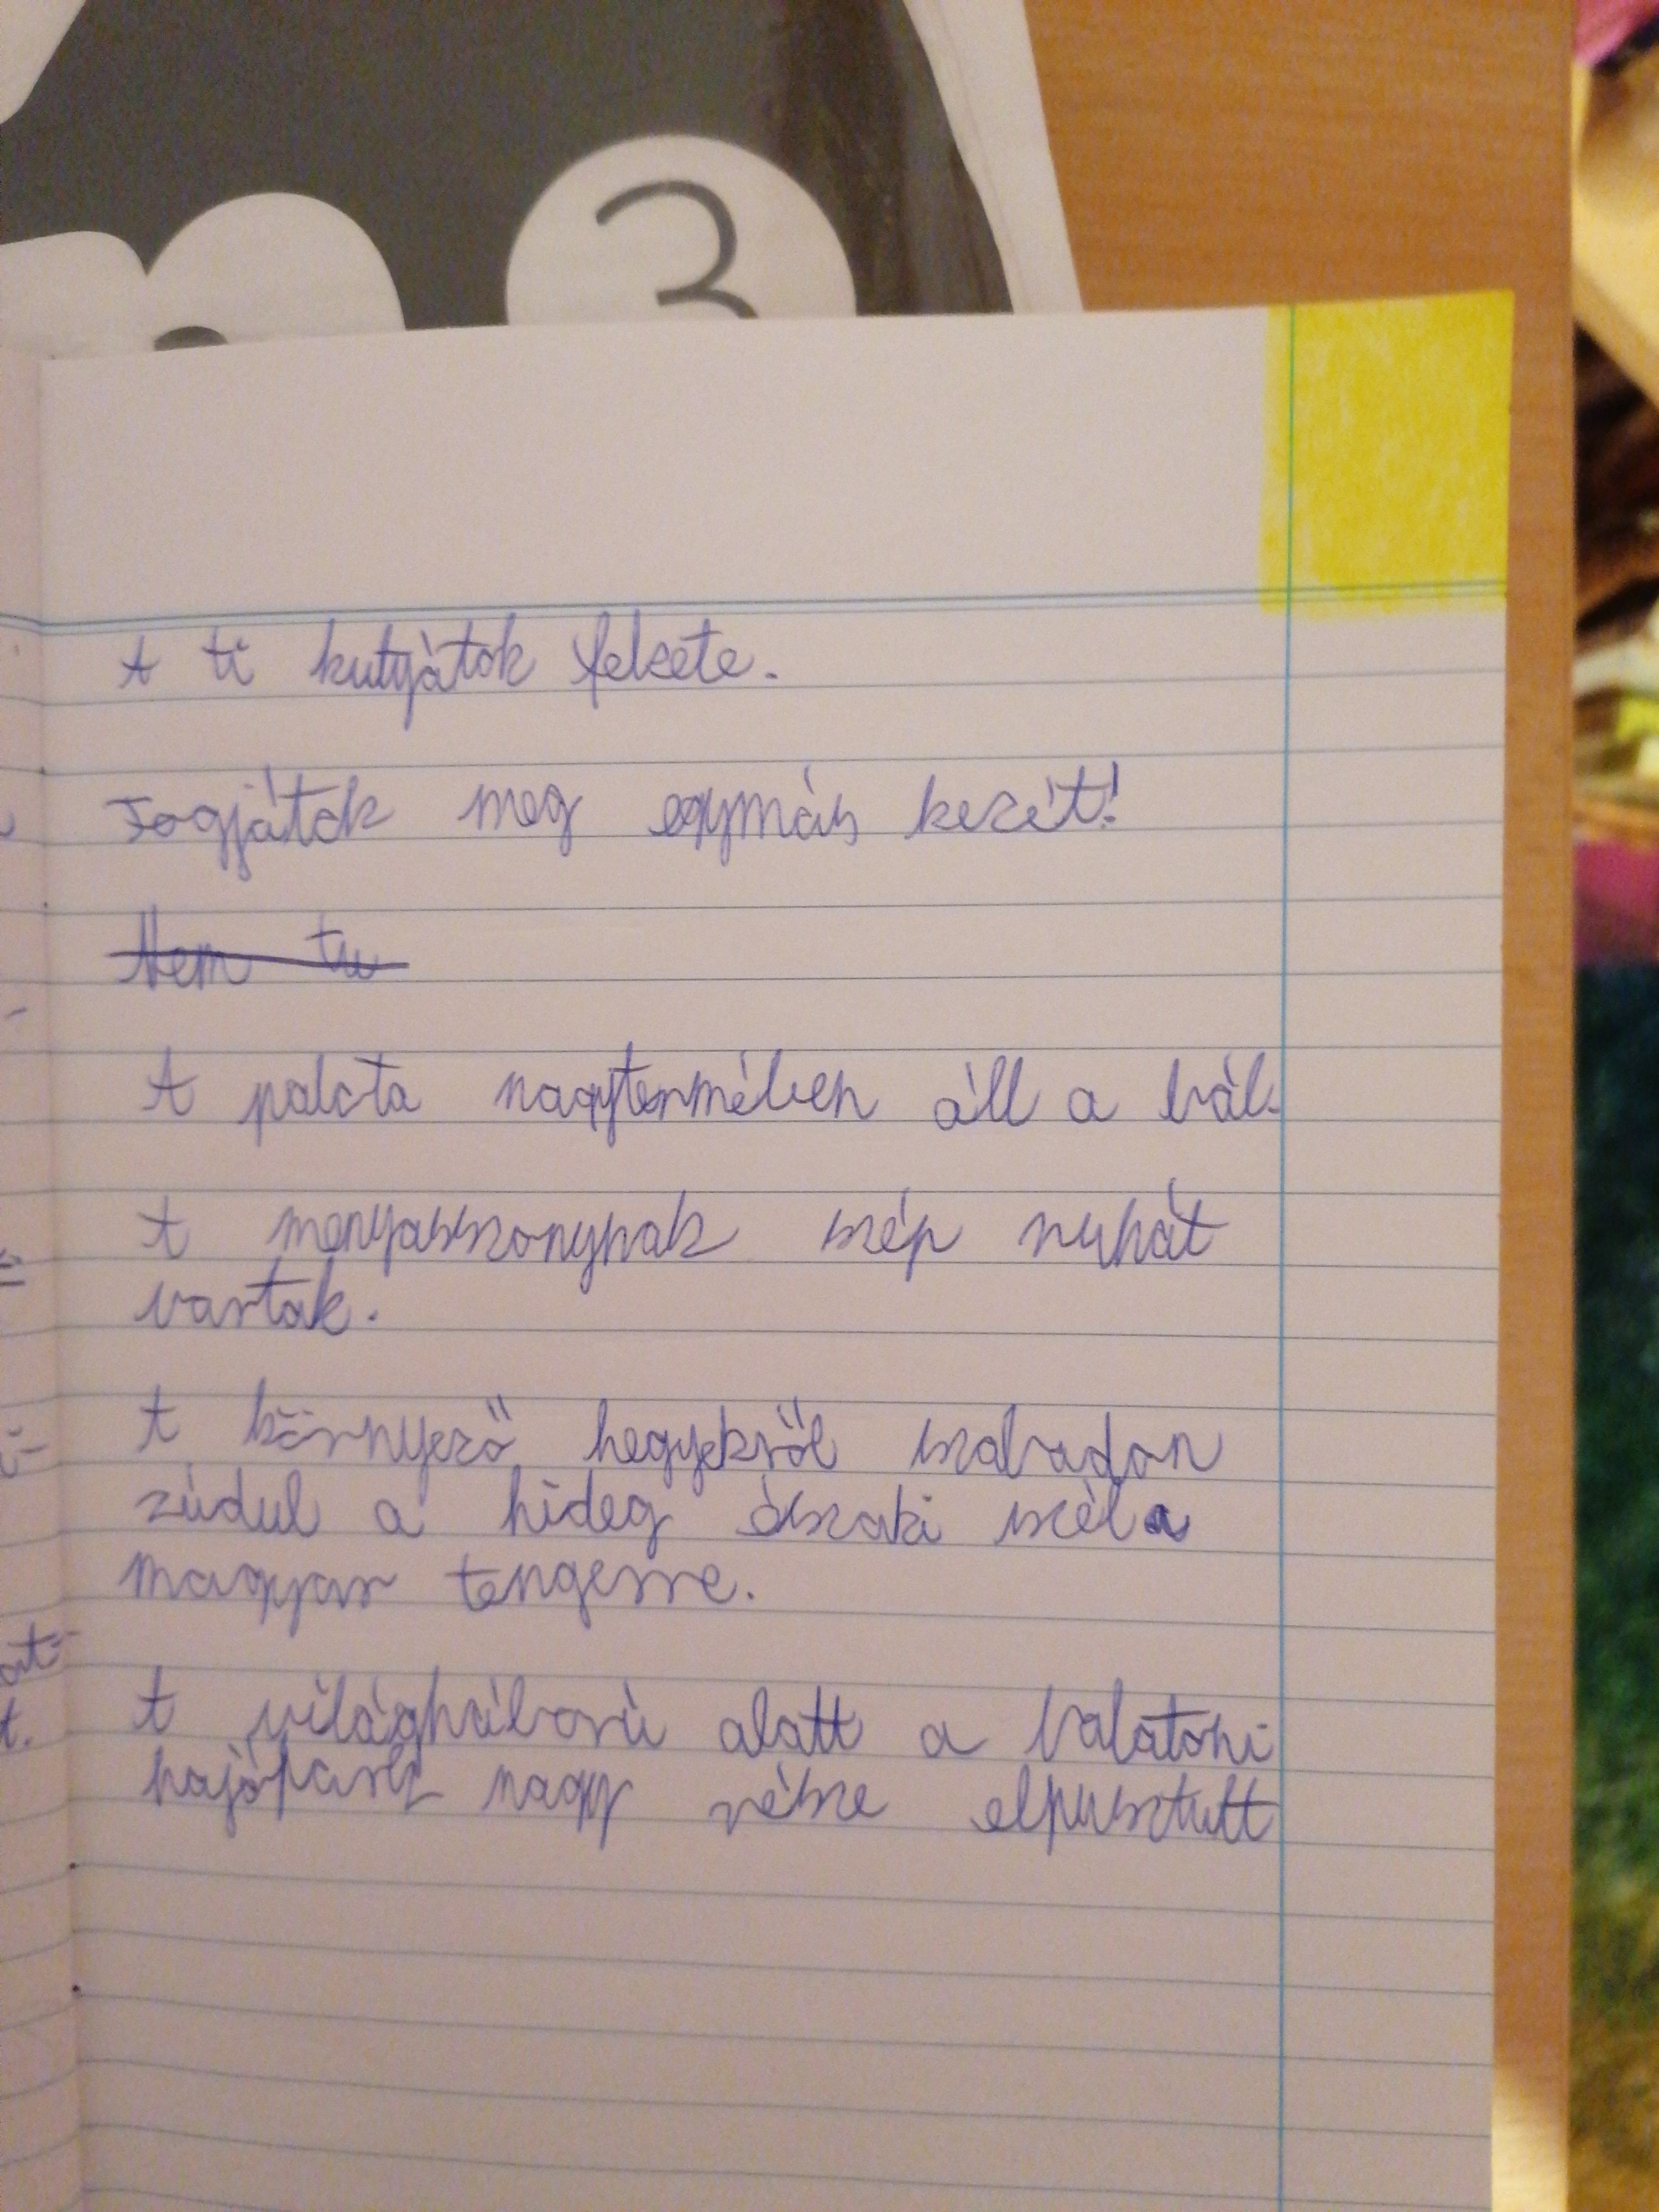 3
A ti kutyátok fekete.
Fogjátok meg egymás kezét!
Nem tu
A palota nagytermében áll a bál.
A menyasszonynak szép ruhát
vartak.
A környező hegyekről szabadon
zúdul a hideg északi szél a
magyar tengerre.
A világháború alatt a balatoni
hajópark nagy része elpusztult